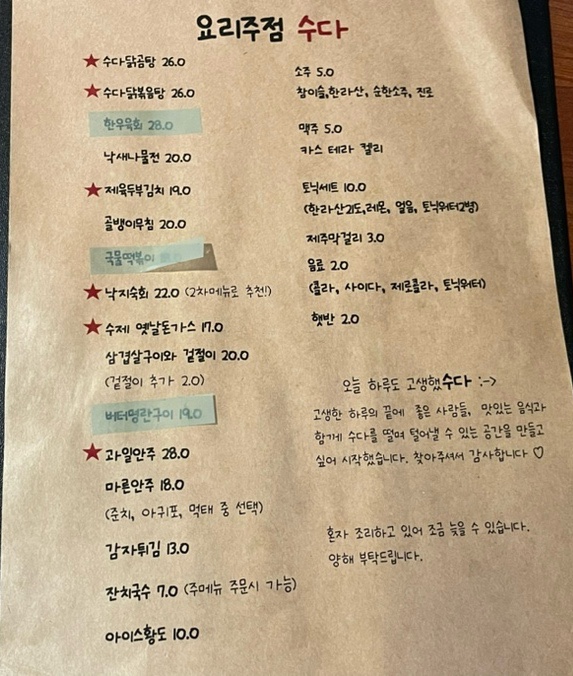 요리주점 수다
★ 수다닭곰탕 26.0
★ 수다닭볶음탕 26.0
한우육회 28.0
낙새나물전 20.0
★ 제육두부김치 19.0
골뱅이무침 20.0
국물떡볶이
★ 낙지숙회 22.0 (2차메뉴로 추천!)
★ 수제 옛날돈가스 17.0
삼겹살구이와 겉절이 20.0
(겉절이 추가 2.0)
버터명란구이 19.0
★ 과일안주 28.0
마른안주 18.0
(준치, 아귀포, 먹태 중 선택)
감자튀김 13.0
잔치국수 7.0 (주메뉴 주문시 가능)
아이스황도 10.0
소주 5.0
참이슬,한라산, 순한소주, 진로
맥주 5.0
카스 테라 켈리
토닉세트 10.0
(한라산21도,레몬, 얼음, 토닉워터2병)
제주막걸리 3.0
음료 2.0
(콜라, 사이다, 제로콜라, 토닉워터)
햇반 2.0
오늘 하루도 고생했수다 :->
고생한 하루의 끝에 좋은 사람들, 맛있는 음식과
함께 수다를 떨며 털어낼 수 있는 공간을 만들고
싶어 시작했습니다. 찾아주셔서 감사합니다 ♡
혼자 조리하고 있어 조금 늦을 수 있습니다.
양해 부탁드립니다.